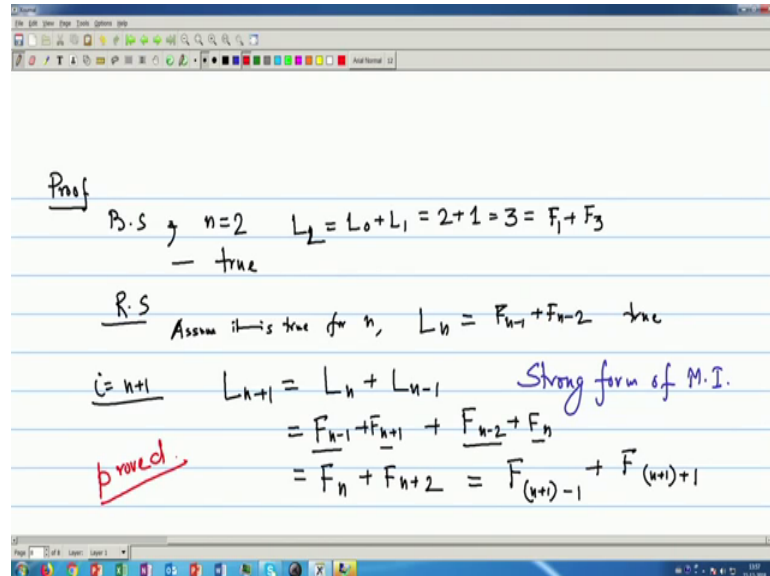 Journal
File Edit View Page Tools Options Help
Arial Normal 12
Proof
B.S , n=2 L₂ = L₀ + L₁ = 2+1 = 3 = F₁ + F₃
— true
R.S
Assum it is true for n, Lₙ = Fₙ₋₁ + Fₙ₋₂ true
i = n+1 Lₙ₊₁ = Lₙ + Lₙ₋₁ Strong form of M.I.
= Fₙ₋₁ + Fₙ₊₁ + Fₙ₋₂ + Fₙ
proved. = Fₙ + Fₙ₊₂ = F₍ₙ₊₁₎₋₁ + F₍ₙ₊₁₎₊₁
Page 8 of 8 Layer: Layer 1